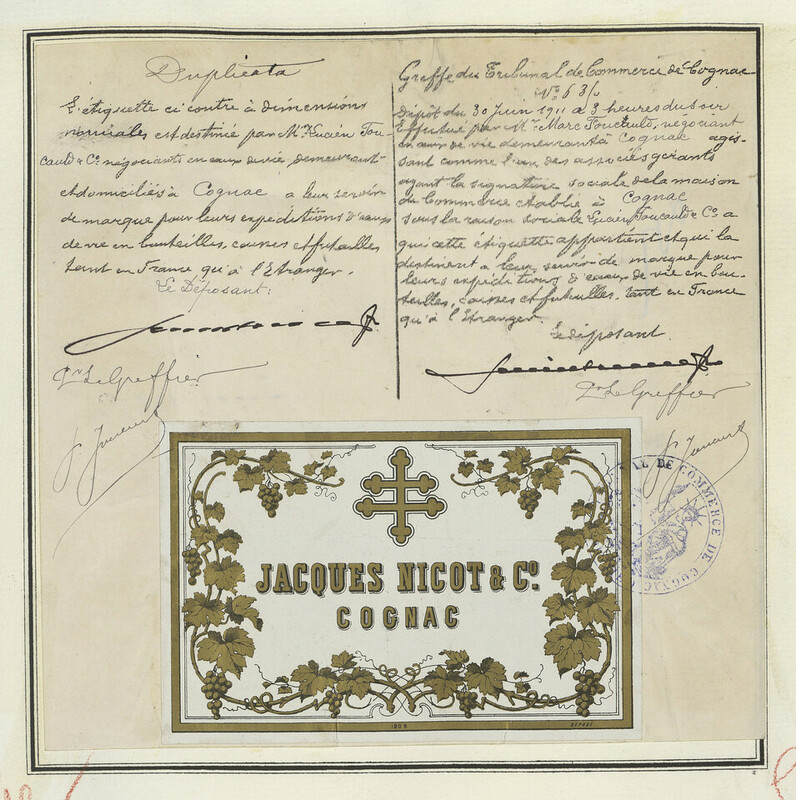 Duplicata
L'étiquette ci contre à dimensions
variables est destinée par Mr Lucien Fou-
cauld & Co négociants en eaux de vie, demeurant
et domiciliés à Cognac a leur servir
de marque pour leurs expéditions d'eaux
de vie en bouteilles, caisses et futailles
tant en France qu'à l'Etranger.
Le Déposant:
Pr Le Greffier
Greffe du Tribunal de Commerce de Cognac
Dépôt du 30 Juin 1911 à 3 heures du soir
Effectué par Mr Marc Foucauld, négociant
en eaux de vie demeurant à Cognac agis-
sant comme l'un des associés gérants
ayant la signature sociale de la maison
de Commerce établie à Cognac
sous la raison sociale Lucien Foucauld & Co a
qui cette étiquette appartient et qui la
destinent a leur servir de marque pour
leurs expéditions d'eaux de vie en bou-
teilles, caisses et futailles, tant en France
qu'à l'Etranger.
Le déposant
Pr Le Greffier
JACQUES NICOT & Co.
COGNAC
DÉPOSÉ
TRIBUNAL DE COMMERCE DE COGNAC